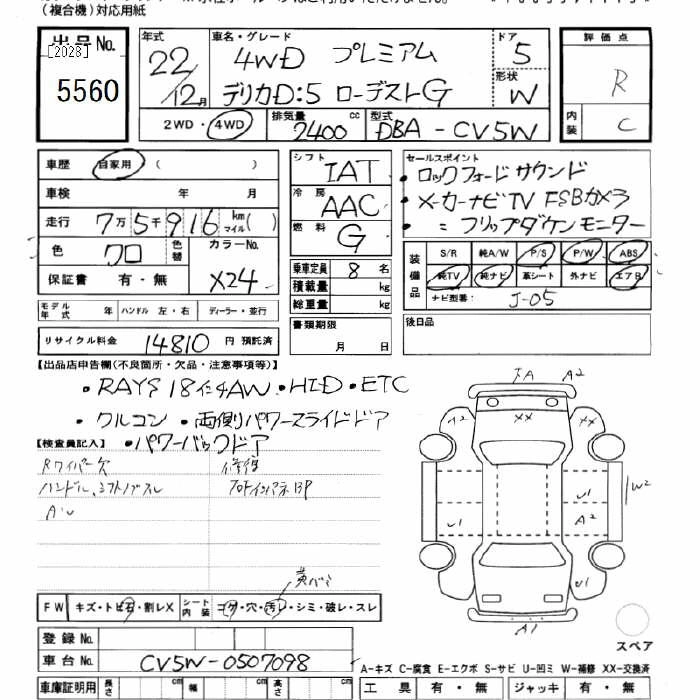 (複合機)対応用紙
出品 No.
[2023]
5560
年式
22年
12月
車名・グレード
4WD プレミアム
デリカD:5 ローデストG
ドア
5
形状
W
2WD・4WD
排気量
2400 cc
型式
DBA-CV5W
評価点
R
内装
C
車歴 自家用 ( )
車検 年 月
走行 7万5千916 km マイル( )
色 クロ 色替 カラーNo.
保証書 有・無 X24
モデル年式 年 ハンドル 左・右 ディーラー・並行
リサイクル料金 14810 円 預託済
シフト IAT
冷房 AAC
燃料 G
乗車定員 8 名
積載量 kg
総重量 kg
書類期限
月 日
セールスポイント
・ロックフォードサウンド
・メーカーナビTV FSBカメラ
・ 〃 フリップダウンモニター
装備品
S/R 純A/W P/S P/W ABS
純TV 純ナビ 革シート 外ナビ エアB
ナビ型番: J-05
後日品
【出品店申告欄(不良箇所・欠品・注意事項等)】
・RAYS 18インチAW ・HID ・ETC
・クルコン ・両側パワースライドドア
・パワーバックドア
【検査員記入】
Rワイパー欠
ハンドル、シフトノブスレ
修復
黄バミ
FW キズ・トビ石・割レX シート内装 コゲ・穴・汚レ・シミ・破レ・スレ
登録 No.
車台 No. CV5W-0507098
車庫証明用 長さ cm 幅 cm 高さ cm
A A2
A2 XX XX
U1 W2
U1 A2
U1
A1
スペア
A-キズ C-腐食 E-エクボ S-サビ U-凹ミ W-補修 XX-交換済
工具 有・無 ジャッキ 有・無